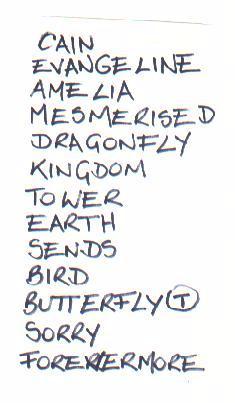 CAIN
EVANGELINE
AMELIA
MESMERISED
DRAGONFLY
KINGDOM
TOWER
EARTH
SENDS
BIRD
BUTTERFLY (T)
SORRY
FOREVERMORE